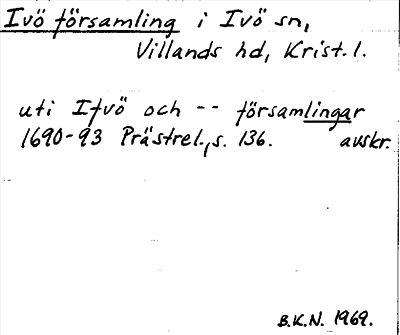 Ivö församling i Ivö sn,
Villands hd, Krist. l.
uti Ifvö och -- församlingar
1690-93 Prästrel., s. 136. avskr.
B.K.N. 1969.